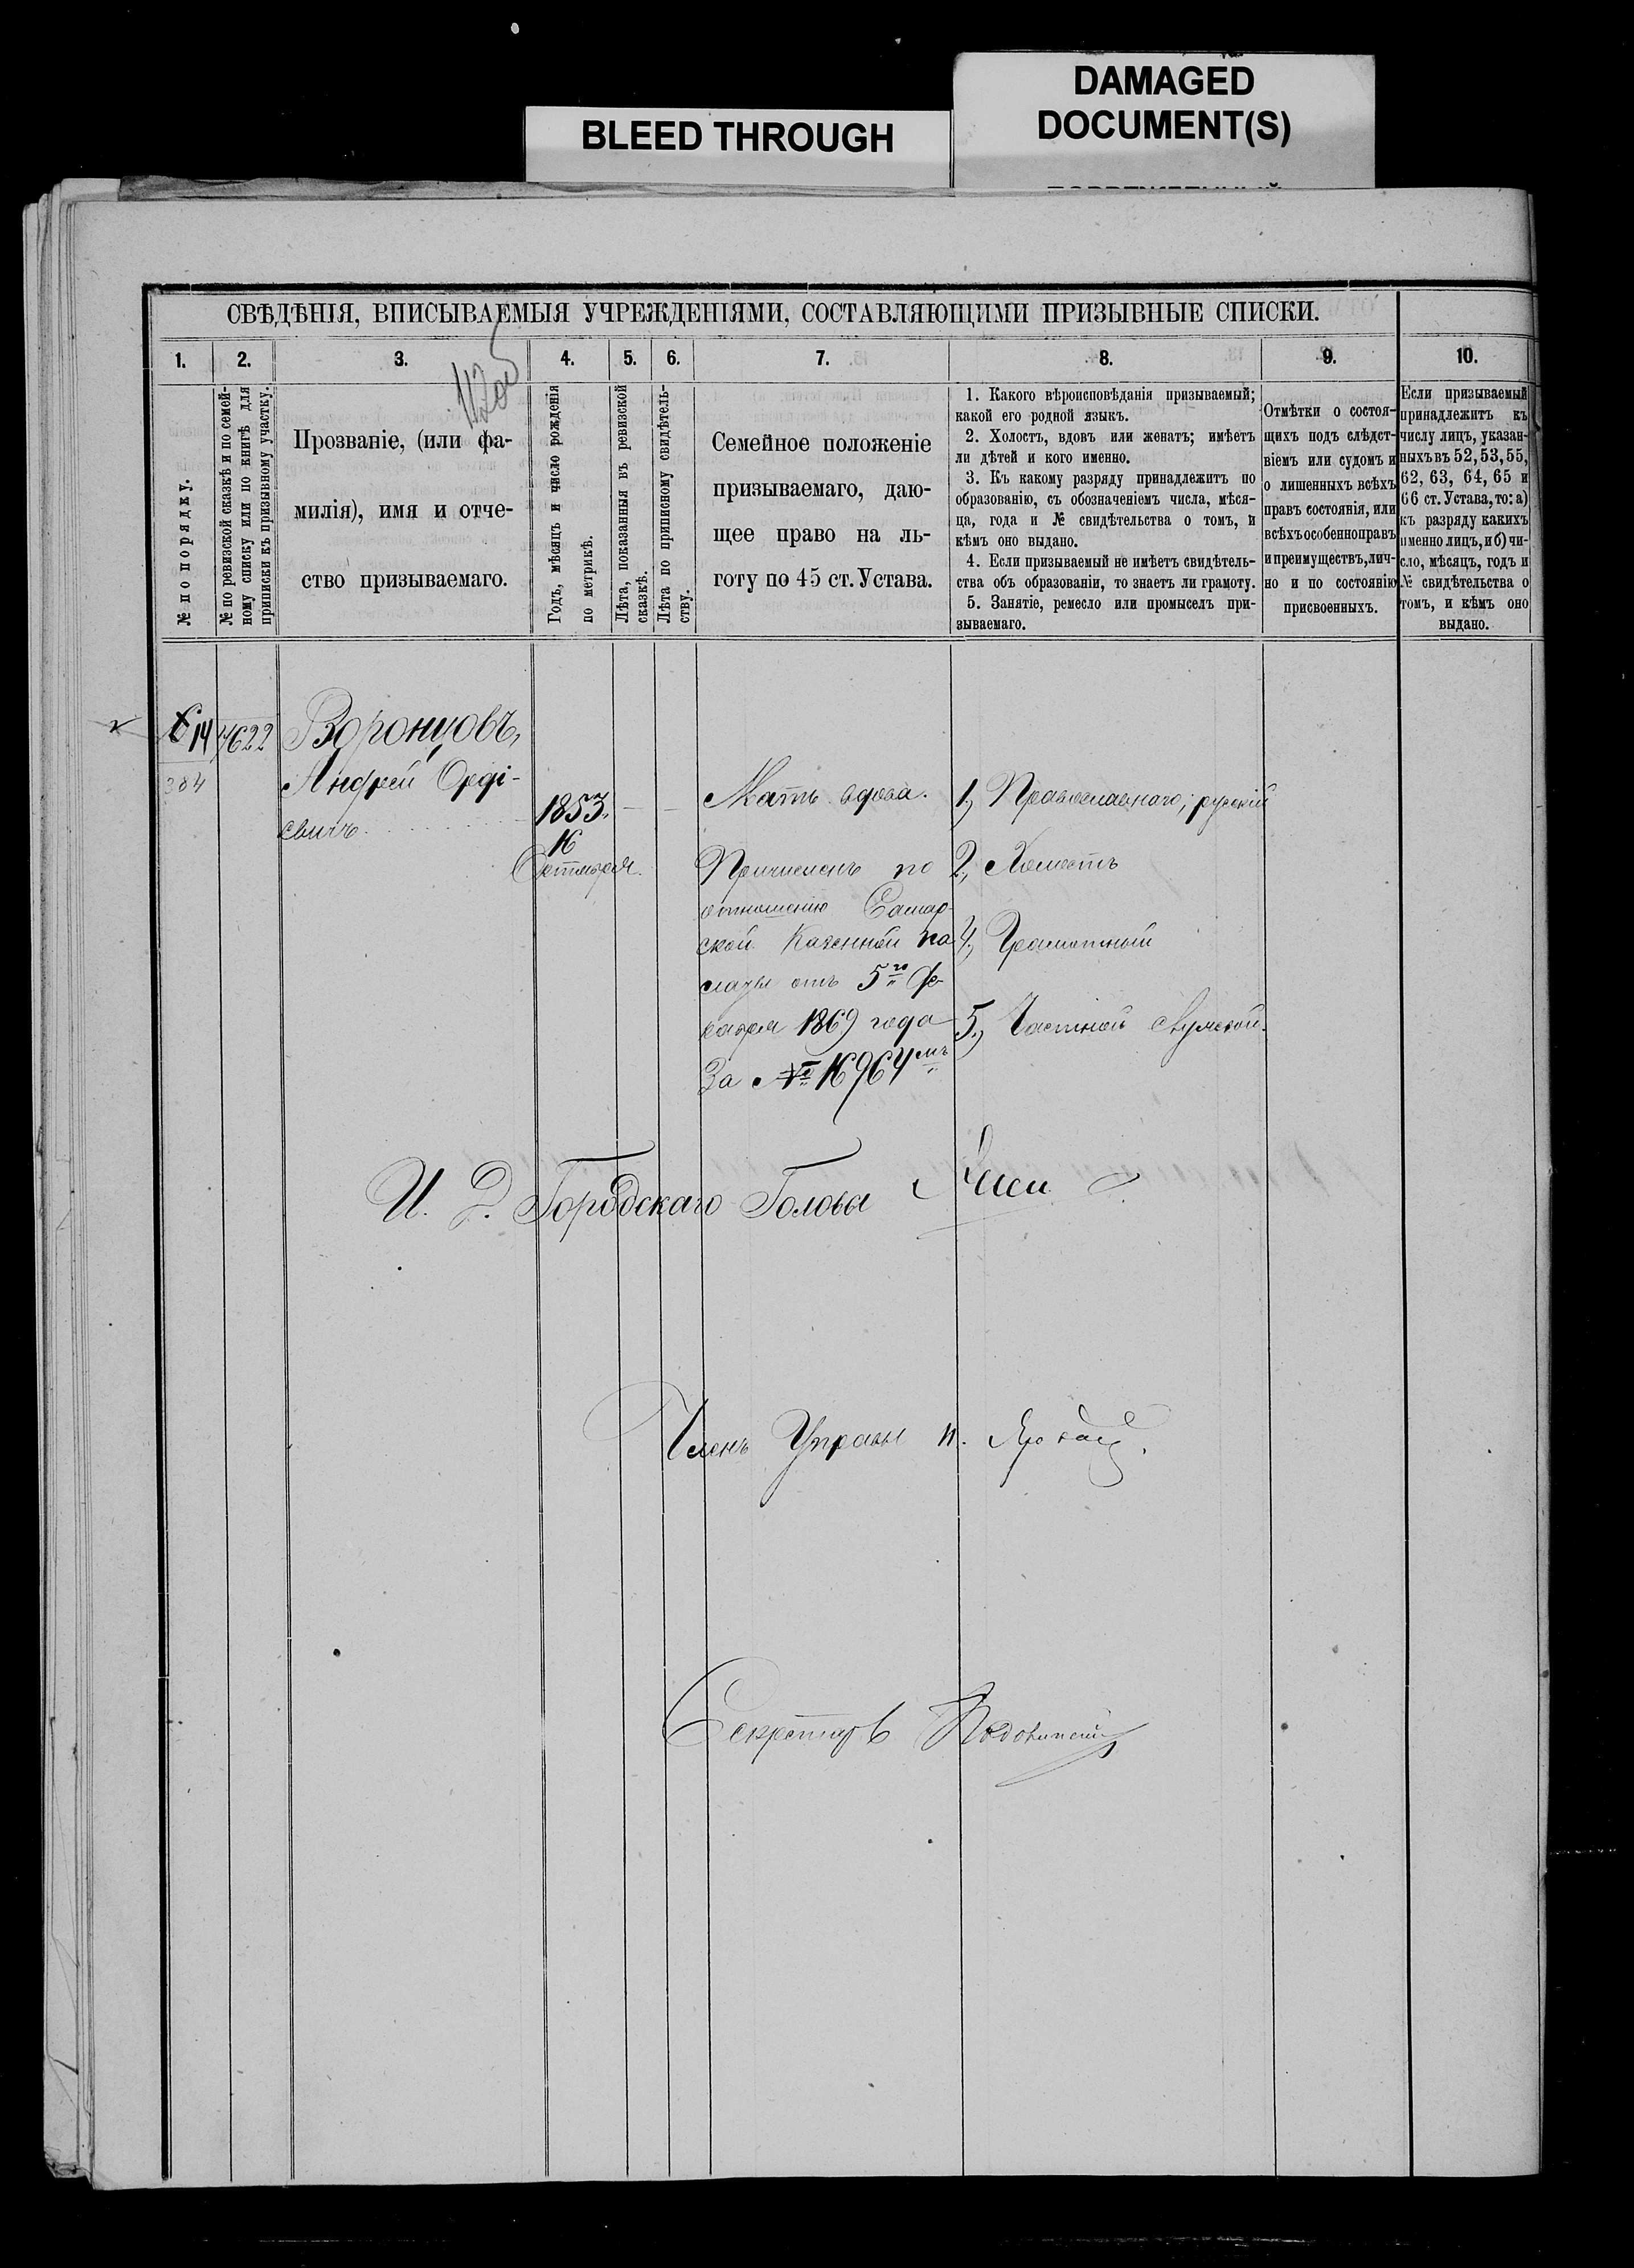 DAMAGED
DOCUMENT(S)
BLEED THROUGH
СВѢДѢНІЯ, ВПИСЫВАЕМЫЯ УЧРЕЖДЕНІЯМИ, СОСТАВЛЯЮЩИМИ ПРИЗЫВНЫЕ СПИСКИ.
1.
2.
3.
4.
5.
6.
7.
8.
9.
10.
№ по порядку.
№ по ревизской сказкѣ и по семей-
ному списку или по книгѣ для
приписки къ призывному участку.
Прозваніе, (или фа-
милія), имя и отче-
ство призываемаго.
Годъ, мѣсяцъ и число рожденія
по метрикѣ.
Лѣта, показанныя въ ревизской
сказкѣ.
Лѣта по приписному свидѣтель-
ству.
Семейное положеніе
призываемаго, даю-
щее право на ль-
готу по 45 ст. Устава.
1. Какого вѣроисповѣданія призываемый;
какой его родной языкъ.
2. Холостъ, вдовъ или женатъ; имѣетъ
ли дѣтей и кого именно.
3. Къ какому разряду принадлежитъ по
образованію, съ обозначеніемъ числа, мѣся-
ца, года и № свидѣтельства о томъ, и
кѣмъ оно выдано.
4. Если призываемый не имѣетъ свидѣтель-
ства объ образованіи, то знаетъ ли грамоту.
5. Занятіе, ремесло или промыселъ при-
зываемаго.
Отмѣтки о состоя-
щихъ подъ слѣдст-
віемъ или судомъ и
о лишенныхъ всѣхъ
правъ состоянія, или
всѣхъ особенно правъ
и преимуществъ, лич-
но и по состоянію
присвоенныхъ.
Если призываемый
принадлежитъ къ
числу лицъ, указан-
ныхъ въ 52, 53, 55,
62, 63, 64, 65 и
66 ст. Устава, то: а)
къ разряду какихъ
именно лицъ, и б) чи-
сло, мѣсяцъ, годъ и
№ свидѣтельства о
томъ, и кѣмъ оно
выдано.
14
7622
384
Воронцовъ,
Андрей
евичъ
1853.
16
Октября.
Мать вдова.
Причисленъ по
отношенію Самар-
ской Казенной Па
латы отъ 5го Фе
враля 1869 года
За № 16964мъ
1, Православнаго; русскій
2, Холостъ
4, Грамотный
5, Частной службой.
И. Д. Городскаго Головы
Членъ Управы
Секретарь